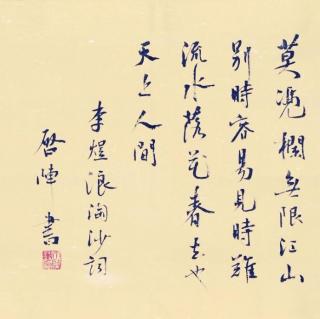 莫凴欄無限江山
別時容易見時難
流水落花春去也
天上人間
李煜浪淘沙詞
啓陣書